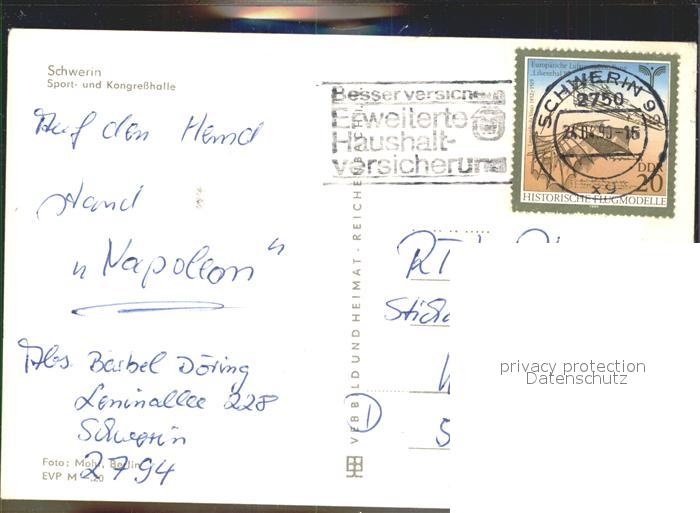 Schwerin
Sport- und Kongreßhalle
Auf dem Hemd
stand
„Napoleon"
Abs. Bärbel Döring
Leninallee 228
Schwerin
2794
Foto: Mohr, Berlin
EVP M -.20
VEB BILD UND HEIMAT · REICHENBACH
Besser versich
Erweiterte
Haushalt-
versicherun
Europäische
Lilienthal
SCHWERIN 9
2750
90-16
DDR
20
HISTORISCHE FLUGMODELLE
RT
Stich
1
5
privacy protection
Datenschutz